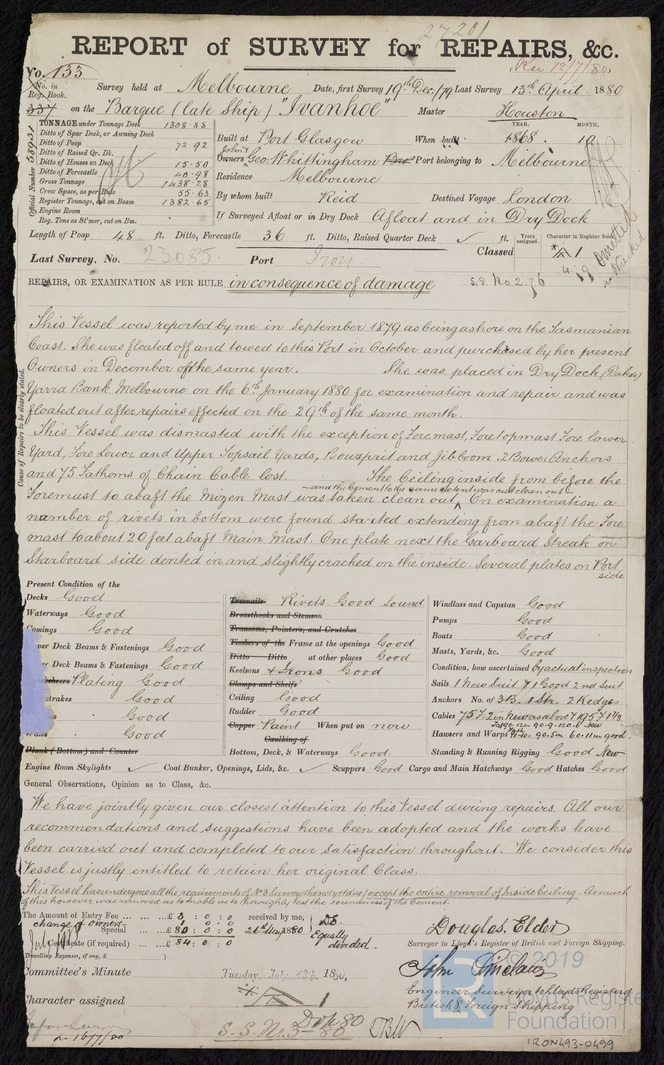 27201
REPORT of SURVEY for REPAIRS, &c.
No. 133
Rec 12/7/80
No. in Reg. Book. Survey held at Melbourne Date, first Survey 19th Dec/79 Last Survey 13th April 1880
337 on the Barque (late Ship) "Ivanhoe" Master Houston
TONNAGE under Tonnage Deck 1308.88
Ditto of Spar Deck, or Awning Deck
Ditto of Poop 72.92
Ditto of Raised Qr. Dk.
Ditto of Houses on Deck 15.50
Ditto of Forecastle 40.98
Gross Tonnage 1438.28
Crew Space, as per Rule 55.63
Register Tonnage, cut on Beam 1382.65
Engine Room
Reg. Tons as St'mer, cut on Bm.
Official Number 58921
YEAR. MONTH.
Built at Port Glasgow When built 1868. 10
Owners Geo. Whittingham Port belonging to Melbourne
Residence Melbourne
By whom built Reid Destined Voyage London
If Surveyed Afloat or in Dry Dock Afloat and in Dry Dock
Length of Poop 48 ft. Ditto, Forecastle 36 ft. Ditto, Raised Quarter Deck ✓ ft.
Years assigned. Character in Register Book
Last Survey, No. 23085 Port Iron Classed A 1
REPAIRS, OR EXAMINATION AS PER RULE in consequence of damage S.S. No 2.76
Cause of Repairs to be clearly stated.
This Vessel was reported by me in September 1879 as being ashore on the Tasmanian
Coast. She was floated off and towed to this Port in October and purchased by her present
Owners in December of the same year. She was placed in Dry Dock (Dukes)
Yarra Bank Melbourne on the 6th January 1880 for examination and repair and was
floated out after repairs effected on the 29th of the same month.
This Vessel was dismasted with the exception of Foremast, Foretopmast Fore lower
Yard, Fore Lower and Upper Topsail Yards, Bowsprit and Jibboom. 2 Bower Anchors
and 75 Fathoms of Chain Cable lost. The Ceiling inside from before the
Foremast to abaft the Mizen Mast was taken clean out, and the Cement to the same extent was cut clean out On examination a
number of rivets in bottom were found started extending from abaft the Fore
mast to about 20 feet abaft Main Mast. One plate next the Garboard Streak on
Starboard side dented in and slightly cracked on the inside. Several plates on Port
side
Present Condition of the
Decks Good
Waterways Good
Comings Good
Upper Deck Beams & Fastenings Good
Deck Beams & Fastenings Good
Plating Good
Good
Good
Good
Plank (Bottom) and Counter
Treenails Rivets Good Sound
Breasthooks and Stemson
Transoms, Pointers, and Crutches
Timbers of the Frame at the openings Good
Ditto Ditto at other places Good
Keelsons & Irons Good
Clamps and Shelfs
Ceiling Good
Rudder Good
Copper Paint When put on now
Caulking of
Bottom, Deck, & Waterways Good.
Windlass and Capstan Good
Pumps Good
Boats Good
Masts, Yards, &c. Good
Condition, how ascertained by actual inspection
Sails 1 New Suit & 1 Good 2nd Suit
Anchors No. of 3 B. 1 Str. 2 Kedges
Hawsers and Warps
Standing & Running Rigging Good New
Engine Room Skylights ✓ Coal Bunker, Openings, Lids, &c. ✓ Scuppers Good Cargo and Main Hatchways Good Hatches Good
General Observations, Opinion as to Class, &c.
We have jointly given our closest attention to this Vessel during repairs. All our
recommendations and suggestions have been adopted and the works have
been carried out and completed to our Satisfaction throughout. We consider this
Vessel is justly entitled to retain her original Class.
This Vessel has undergone all the requirements of No 3 Survey except the entire removal of Inside Ceiling. As much
of this however was removed as to enable us to thoroughly test the soundness of the Cement.
The Amount of Entry Fee £3 : 0 : 0 received by me,
change of owners
Special £80 : 0 : 0 26th May 1880
Certificate (if required) £84 : 0 : 0
Equally divided.
Travelling Expenses, if any, £
Douglas Elder
Surveyor to Lloyd's Register of British and Foreign Shipping.
Committee's Minute Tuesday, July 13th, 1880.
Engineer Surveyor to Lloyds Register
British & Foreign Shipping
Character assigned A 1
S.S. No 3-80
© 2019
Lloyd's Register
Foundation
IRON493-0499